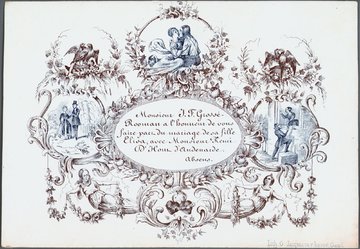 Monsieur J. F. Grosse-
Rooman a l'honneur de vous
faire part du mariage de sa fille
Elisa, avec Monsieur Henri
D'Hont d'Audenarde.
Absens.
Lith. G. Jacqmain